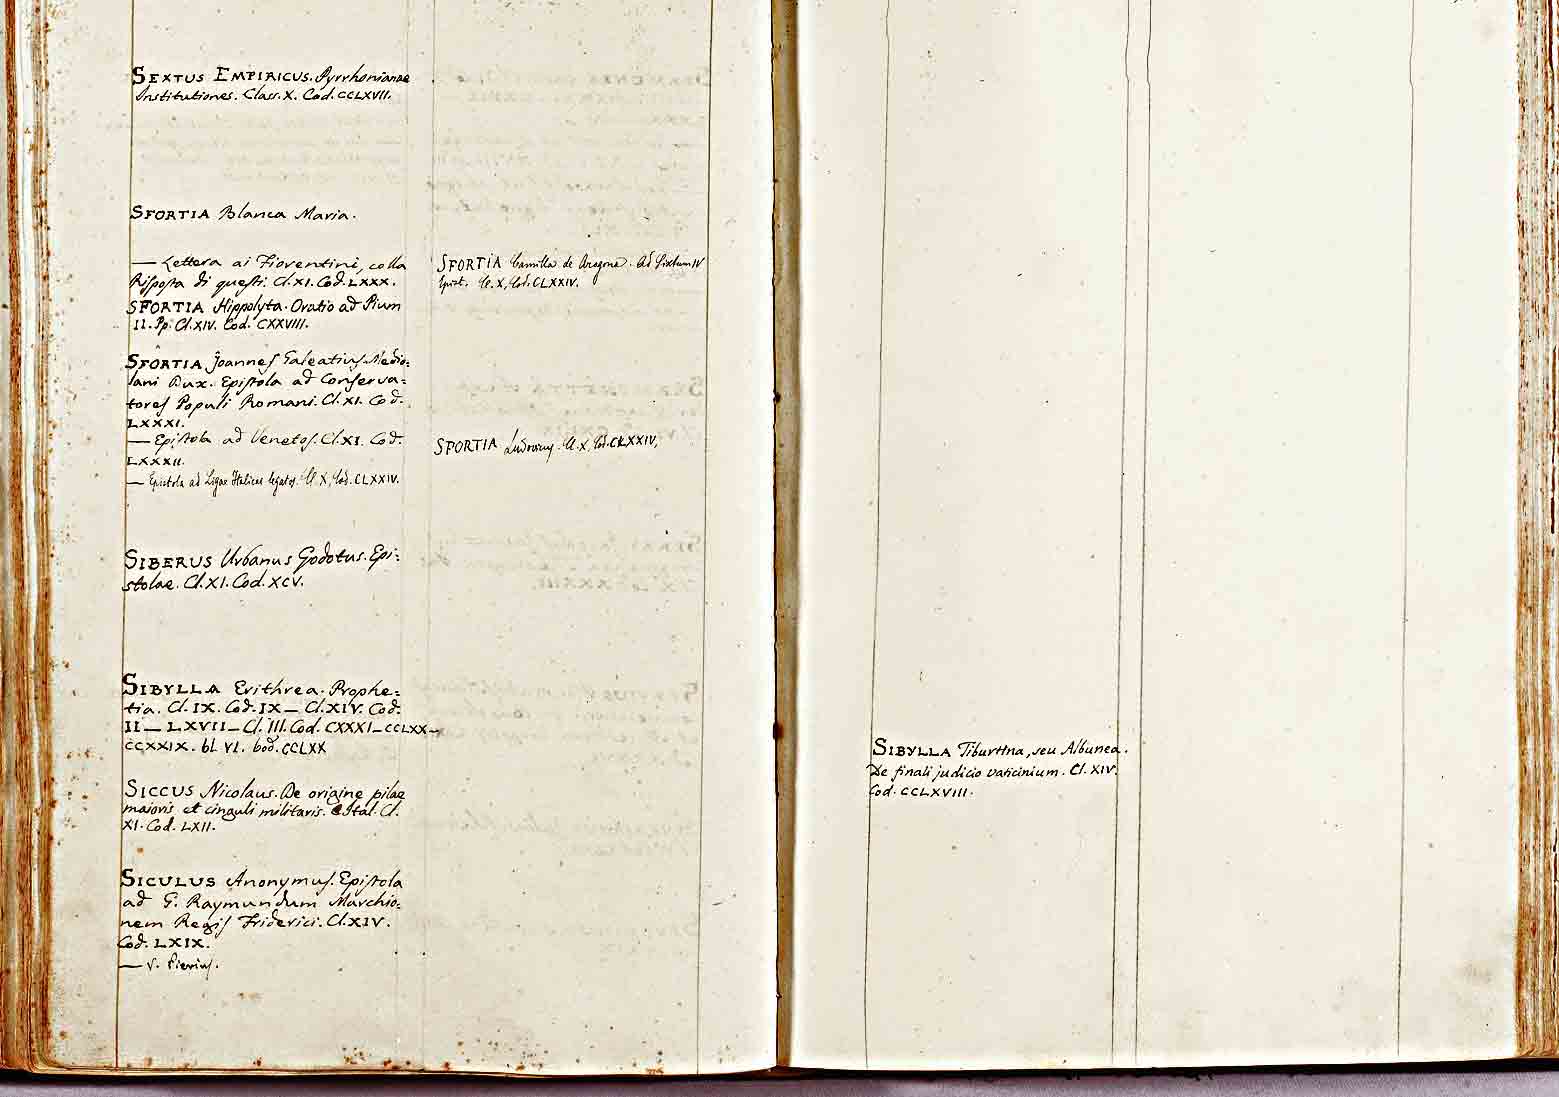 SEXTUS EMPIRICUS. Pyrrhonianae
Institutiones. Class. X. Cod. CCLXVII.
SFORTIA Blanca Maria.
— Lettera ai Fiorentini, colla
Risposta di questi. Cl. XI. Cod. LXXX.
SFORTIA Hippolyta. Oratio ad Pium
II. Pp. Cl. XIV. Cod. CXXVIII.
SFORTIA Joannes Galeatius Medio:
lani Dux. Epistola ad Conserva:
tores Populi Romani. Cl. XI. Cod.
LXXXI.
— Epistola ad Venetos. Cl. XI. Cod.
LXXXII.
— Epistola ad Ligae Italicae legatos. Cl. X, Cod. CLXXIV.
SIBERUS Urbanus Godotus. Epi:
stolae. Cl. XI. Cod. XCV.
SIBYLLA Erithrea. Prophe:
tia. Cl. IX. Cod. IX — Cl. XIV. Cod.
II — LXVII — Cl. III. Cod. CXXXI — CCLXX —
CCXXIX. Cl. VI. Cod. CCLXX
SICCUS Nicolaus. De origine pilae
maioris et cinguli militaris. Ital. Cl.
XI. Cod. LXII.
SICULUS Anonymus. Epistola
ad G. Raymundum Marchio:
nem Regis Friderici. Cl. XIV.
Cod. LXIX.
— V. Pierius.
SFORTIA Camilla de Aragona. Ad Sixtum IV
Epist. Cl. X, Cod. CLXXIV.
SFORTIA Ludovicus. Cl. X, Cod. CLXXIV,
SIBYLLA Tiburtina, seu Albunea.
De finali judicio vaticinium. Cl. XIV.
Cod. CCLXVIII.